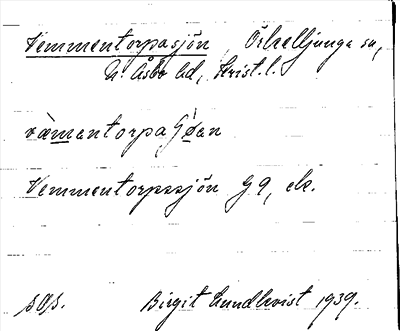 Vemmentorpasjön, Örkelljunga sn,
N. Åsbo hd, Krist. l.
vämentorpa
Vemmentorpasjön G 9, ek.
sjö.
Birgit Lundkvist 1939.